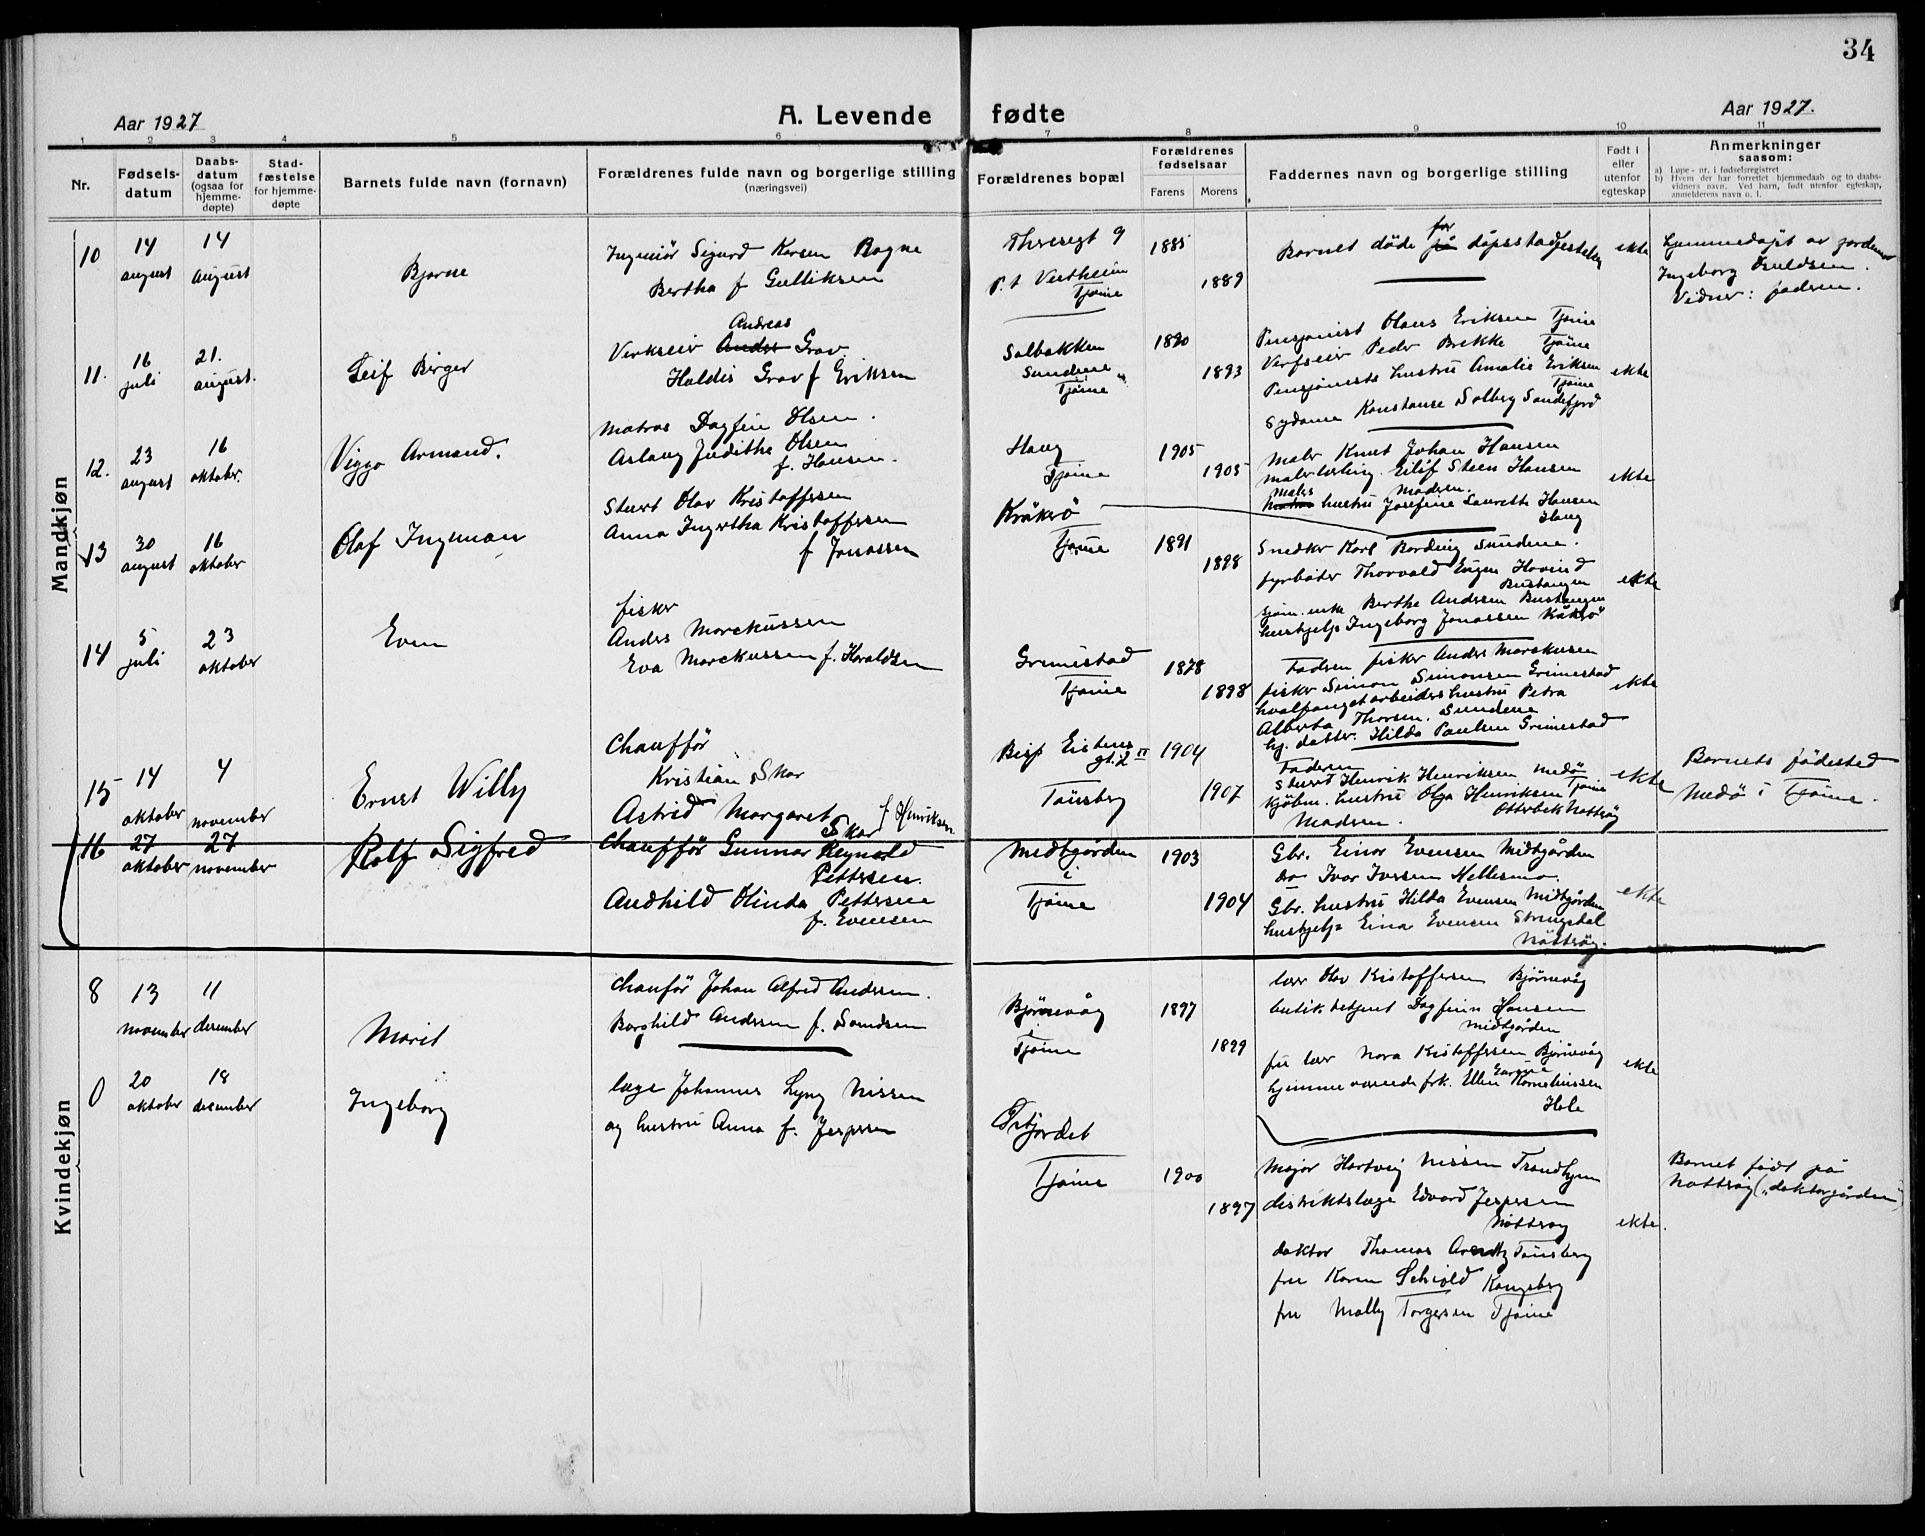 34
Aar 1927
A. Levende fødte
Aar 1927.
1 2 3 4 5 6 7 8 9 10 11
Nr.
Fødsels-
datum
Daabs-
datum
(ogsaa for
hjemme-
døpte)
Stad-
fæstelse
for hjemme-
døpte
Barnets fulde navn (fornavn)
Forældrenes fulde navn og borgerlige stilling
(næringsvei)
Forældrenes bopæl
Forældrenes
fødselsaar
Farens Morens
Faddernes navn og borgerlige stilling
Født i
eller
utenfor
egteskap
Anmerkninger
saasom:
a) Løpe-nr. i fødselsregistret
b) Hvem der har forrettet hjemmedaab og to daabs-
vidners navn. Ved barn, født utenfor egteskap,
anmelderens navn o. l.
Mandkjøn
10
14
august
14
august
Bjarne
Ingeniør Sigurd Bogne
Bertha f Gulliksen
9
P.t Vertheim
Tjøme
1885
1889
for
Barnet døde på dåpsstadfestelse
ekte
Hjemmedøpt av jordmor
Ingeborg
Vidner: faderen.
11.
16
juli
21.
august.
Leif Birger
Andreas
Verkseier Anders Grav
Haldis Grav f Eriksen
Solbakken
Sundene
Tjøme
1890
1893
Pensjonist Olaus Eriksen Tjøme
Verfseier Peder Brekke Tjøme
Pensjonists hustru Amalie Eriksen
Tjøme
Sydame Konstanse Solberg Sandefjord
ekte
12.
23
august
16
oktober.
Viggo Armand.
Matros Dagfin Olsen.
Aslaug Judithe Olsen
f. Hansen.
Haug
Tjøme
1905
1905
Maler Knut Johan Hansen
malerlerling Eilif Steen Hansen
Malers Moderen.
Matros hustru Josefine Laurette Hansen
Haug
ekte
13
30
august
16
oktober
Olaf Ingeman
Stuert Olav Kristoffersen
Anna Ingertha Kristoffersen
f Jonassen
Kråkerø
Tjøme
1891
1898
Snedker Karl Bording Sundene.
fyrbøter Thorvald Eugen Havind
Bustangen
sjøm. enke Berthe Andersen Bustangen
hushjelp Ingeborg Jonassen Kåkerø
ekte
14
5
juli
23
oktober
Even
fisker
Anders Marckussen
Eva Marckussen f. Haraldsen
Grimestad
Tjøme
1878
1898
Faderen fisker Anders Marckusen
fisker Simon Simonsen Grimestad
hvalfangstarbeiders hustru Petra
Alberta Thorsen. Sundene
hj. datter. Hilda Paulsen Grimestad
ekte
15
14
oktober
4
november
Ernst Willy
Chauffør
Kristian Skar
Astrid Margaret
Skar f Henriksen
Eistens
gt. 2 II
Tønsberg
1904
1907
Faderen
Stuert Henrik Henriksen Medø
Tjøme
kjøbm. hustru Olga Henriksen
Otterbek Nøtterøy
Moderen.
ekte
Barnets fødested
Medø i Tjøme.
16
27
oktober
27
november
Rolf Sigfred
Chauffør Gunnar Reynold
Pettersen.
Audhild Olinda Pettersen
f. Evensen
Midtgården
i
Tjøme
1903
1904
Gbr. Einar Evensen Midtgården
do Ivar Iversen Hellesmo.
Gbr. hustru Hilda Evensen Midtgården
hushjelp Eina Evensen Stringdal
Nøtterøy.
ekte
Kvindekjøn
8
13
november
11
desember
Marit
Chauffør Johan Alfred Andersen.
Borghild Andersen f. Samdsen
Bjørnevåg
i
Tjøme
1897
1899
lærer Olav Kistoffersen Bjørnevåg
butikkbetjent Dagfinn Hansen
Midtgården
fru lærer Nora Kistoffersen Bjørnevåg
hjemmeværende frk. Ellen Kornelinssen
Hole
ekte
0
20
oktober
18
desember
Ingeborg
læge Johannes Lyng Nissen
og hustru Anna f. Jespersen
Tjøme
1900
1897
Major Hartvig Nissen Trondhjem
distriktslæge Edvard Jespersen
Nøtterøy
doktor Thomas Arentz Tønsberg
fru Karen Schiøld Kongsberg
fru Molly Torgersen Tjøme
ekte.
Barnet født på
Nøtterøy („doktorgården")